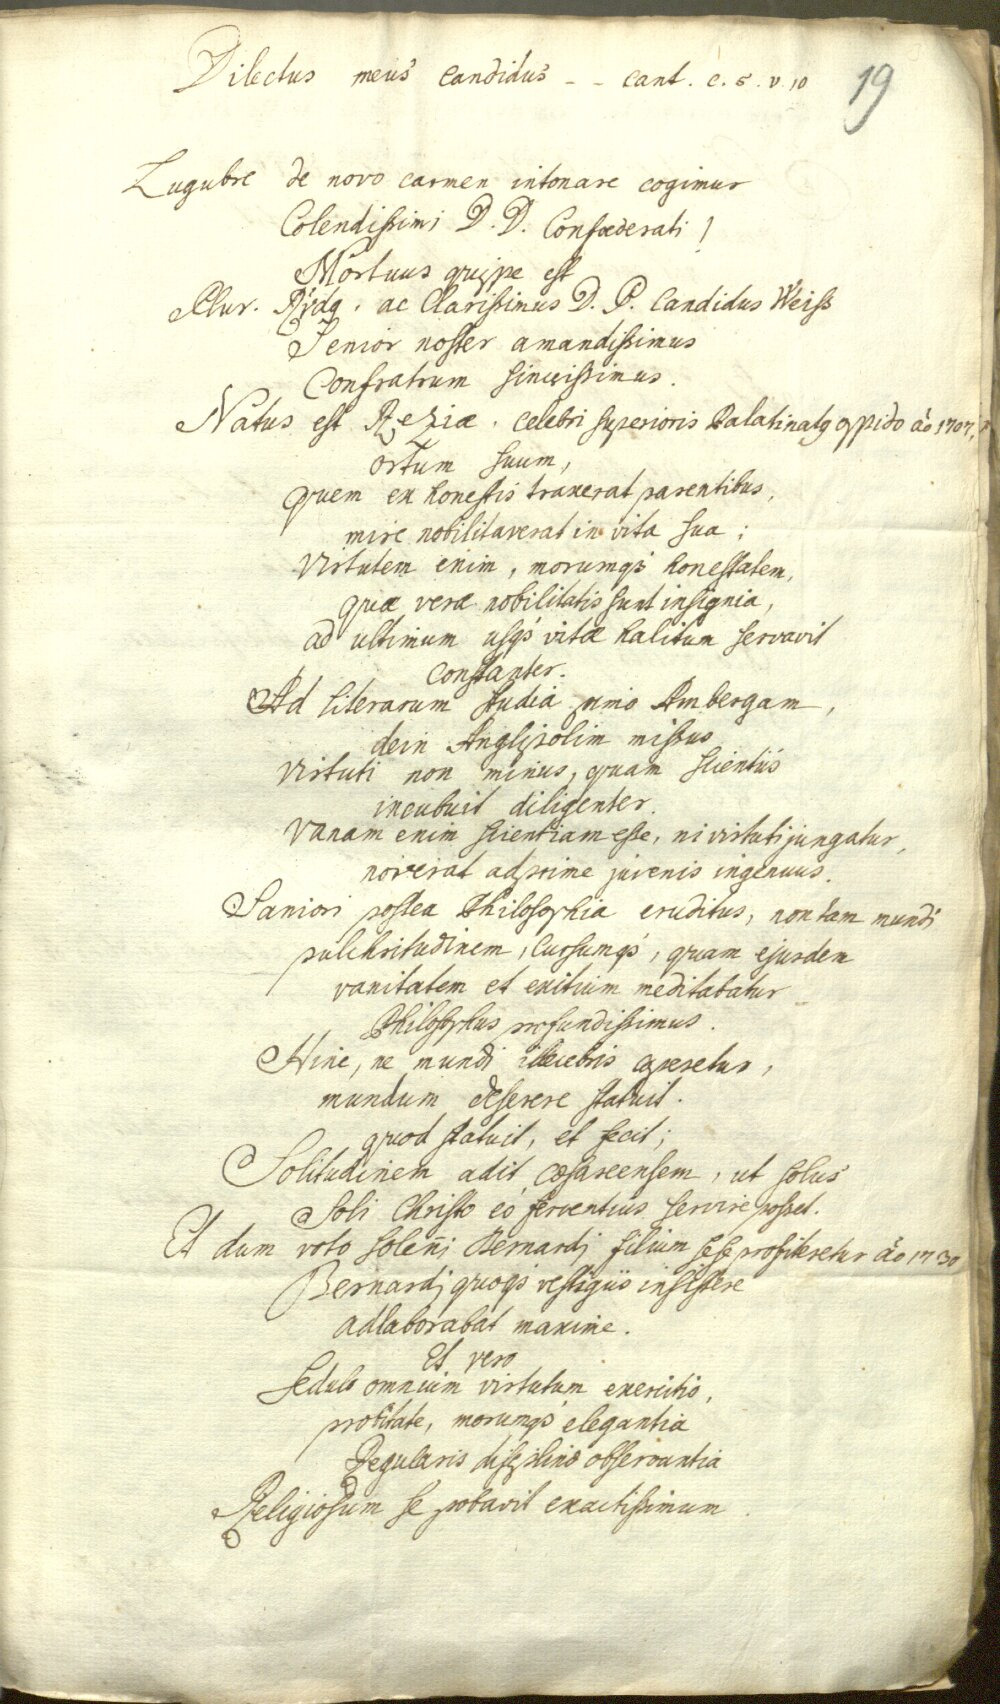 Dilectus meus candidus - - cant. c. 5. v. 10
19
Lugubre de novo carmen intonare cogimur
Colendissimi D. D. Confœderati!
Mortuus quippe est
Plur. Rvdq. ac Clarissimus D. P. Candidus Weiss
Senior noster amandissimus
Confratrum sincerissimus.
Natus est Reziæ. celebri superioris Palatinatq oppido aõ 1707,
ortum suum,
quem ex honestis traxerat parentibus,
mire nobilitaverat in vita sua;
Virtutem enim, morumqs honestatem,
quæ veræ nobilitatis sunt insignia,
ad ultimum usqs vitæ halitum servavit
constanter.
Ad literarum studia primo Ambergam,
dein Anglipolim missus
virtuti non minus, quam scientiis
incubuit diligenter.
Vanam enim scientiam esse, ni virtuti jungatur,
noverat adprime juvenis ingenuus.
Saniori postea Philosophia eruditus, non tam mundi
pulchritudinem, cursumqs, quam ejusdem
vanitatem et exitium meditabatur
Philosophus profundissimus.
Hinc, ne mundi illecebris caperetur,
mundum deserere statuit.
quod statuit, et fecit;
Solitudinem adit cæsareensem, ut solus
soli Christo eó ferventius servire posset.
Et dum voto soleñi Bernardj filium sese profiteretur aõ 1730
Bernardj quoqs vestigiis insistere
adlaborabat maxime.
Et vero
sedulo omnium virtutum exercitio,
probitate, morumqs elegantia
Regularis disciplinæ observantia
Religiosum se probavit exactissimum.